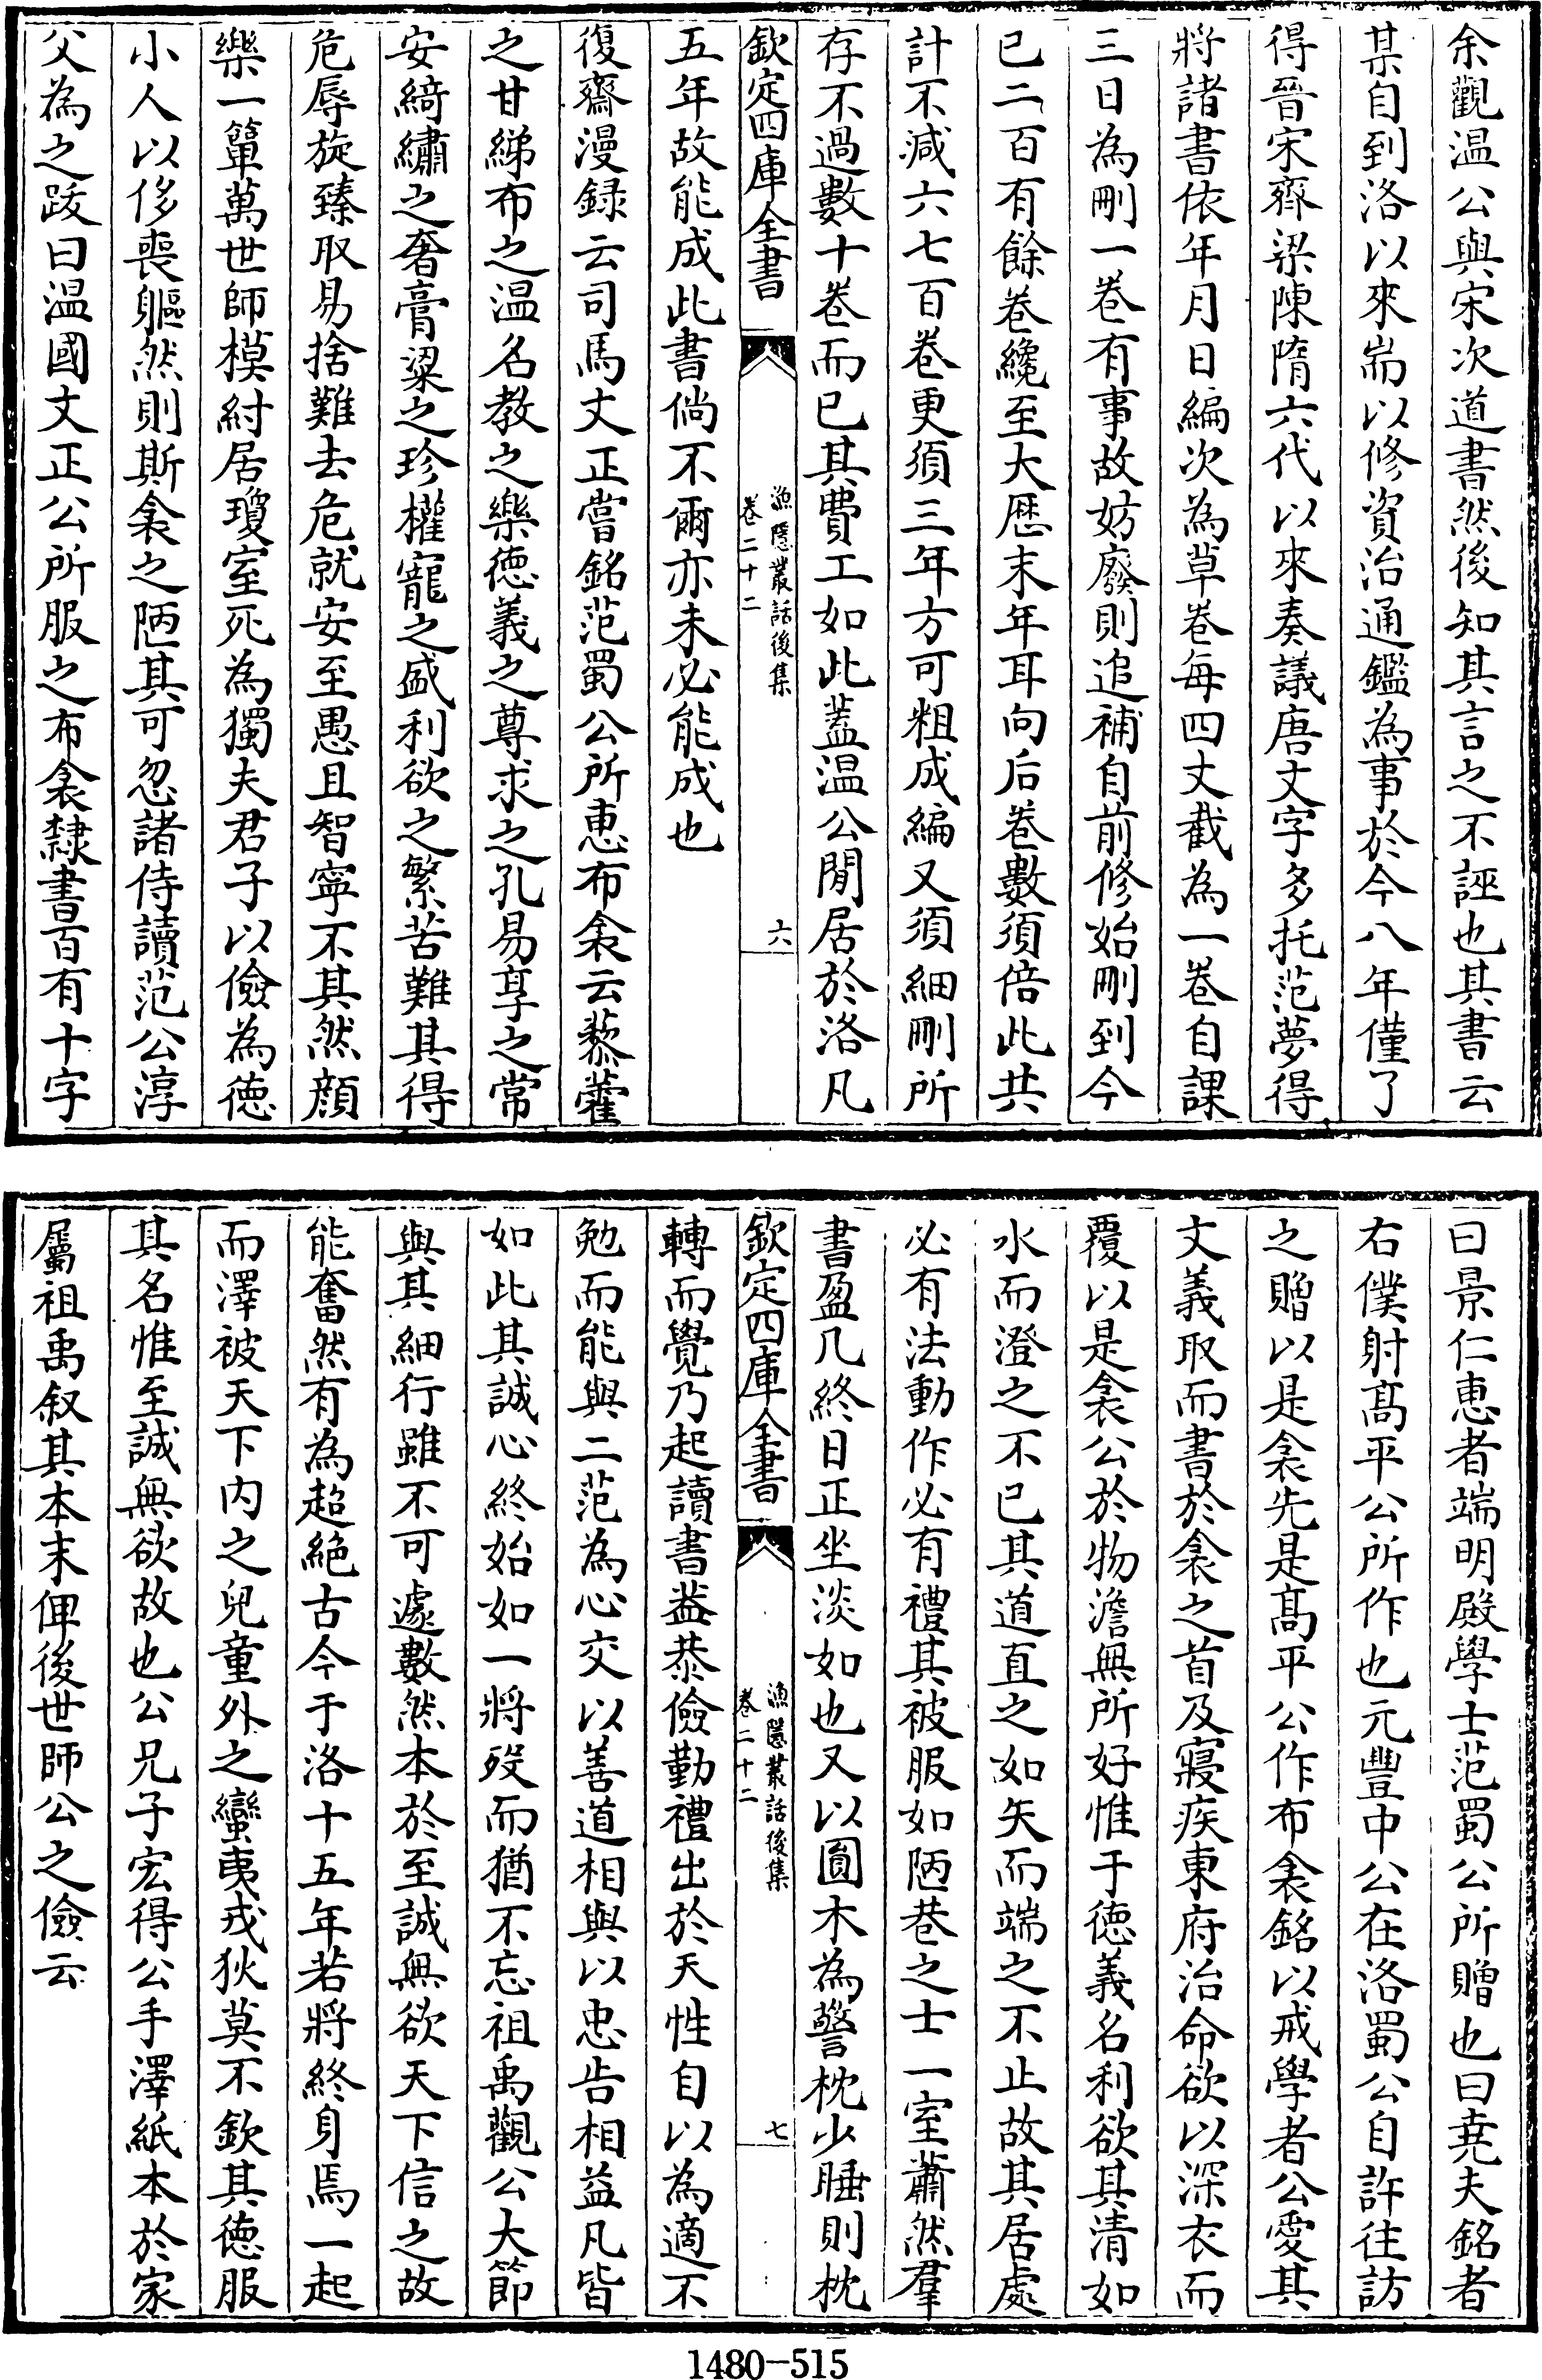 余觀温公與宋次道書然後知其言之不誣也其書云
某自到洛以來耑以修資治通鑑為事於今八年僅了
得晉宋齊梁陳隋六代以來奏議唐文字多托范夢得
將諸書依年月日編次為草卷每四丈截為一卷自課
三日為刪一卷有事故妨廢則追補自前修始刪到今
已二百有餘卷纔至大厯末年耳向后卷數須倍此共
計不減六七百卷更須三年方可粗成編又須細刪所
存不過數十卷而已其費工如此蓋温公閒居於洛凡
欽定四庫全書
漁隱叢話後集
卷二十二
六
五年故能成此書倘不爾亦未必能成也
復齋漫録云司馬文正嘗銘范蜀公所惠布衾云藜藿
之甘綈布之温名教之樂徳義之尊求之孔易享之常
安綺繡之奢膏粱之珍權寵之盛利欲之繁苦難其得
危辱旋臻取易捨難去危就安至愚且智寧不其然顔
樂一簞萬世師模紂居瓊室死為獨夫君子以儉為徳
小人以侈喪軀然則斯衾之陋其可忽諸侍讀范公淳
父為之跋曰温國文正公所服之布衾隸書百有十字
曰景仁惠者端明殿學士范蜀公所贈也曰堯夫銘者
右僕射髙平公所作也元豐中公在洛蜀公自許往訪
之贈以是衾先是髙平公作布衾銘以戒學者公愛其
文義取而書於衾之首及寢疾東府治命欲以深衣而
覆以是衾公於物澹無所好惟于徳義名利欲其清如
水而澄之不已其道直之如矢而端之不止故其居處
必有法動作必有禮其被服如陋巷之士一室蕭然羣
書盈几終日正坐淡如也又以圓木為警枕少睡則枕
欽定四庫全書
漁隱叢話後集
卷二十二
七
轉而覺乃起讀書葢恭儉勤禮出於天性自以為適不
勉而能與二范為心交以善道相與以忠告相益凡皆
如此其誠心終始如一將歿而猶不忘祖禹觀公大節
與其細行雖不可遽數然本於至誠無欲天下信之故
能奮然有為超絶古今于洛十五年若將終身焉一起
而澤被天下内之兒童外之蠻夷戎狄莫不欽其徳服
其名惟至誠無欲故也公兄子宏得公手澤紙本於家
屬祖禹叙其本末俾後世師公之儉云
1480-515